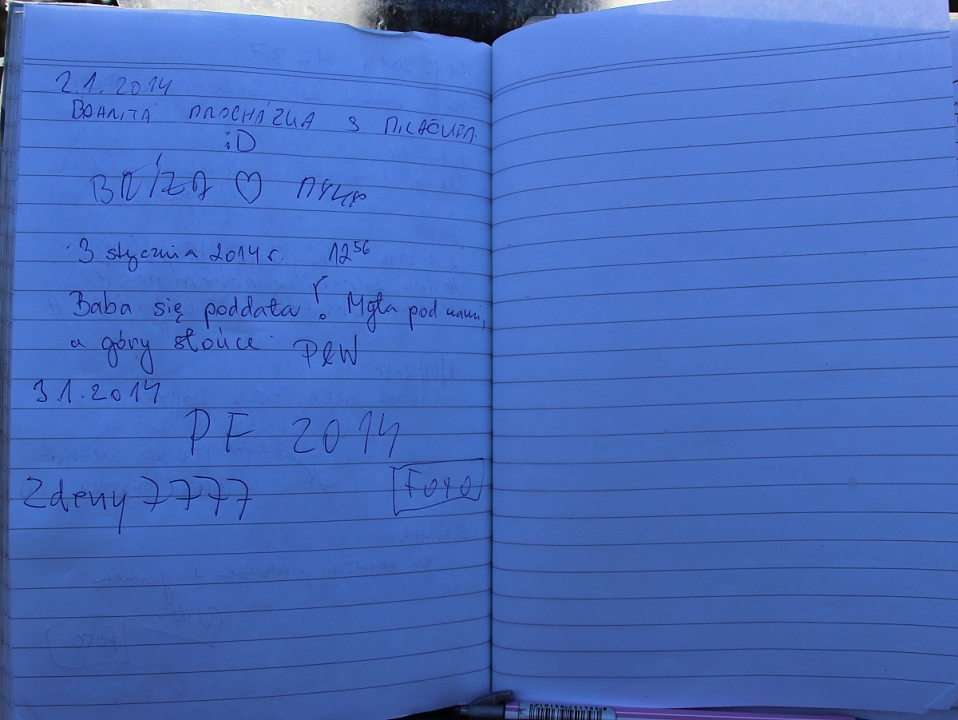 2.1. 2014
BÁJEČNÁ PROCHÁZKA S MILÁČKEM
:D
BŘÍZA ♡
3 stycznia 2014 r. 12⁵⁶
Baba się poddała! Mgła pod nami,
a góry słońce. P&W
3.1.2014
PF 2014
Zdeny 7777 FOTO